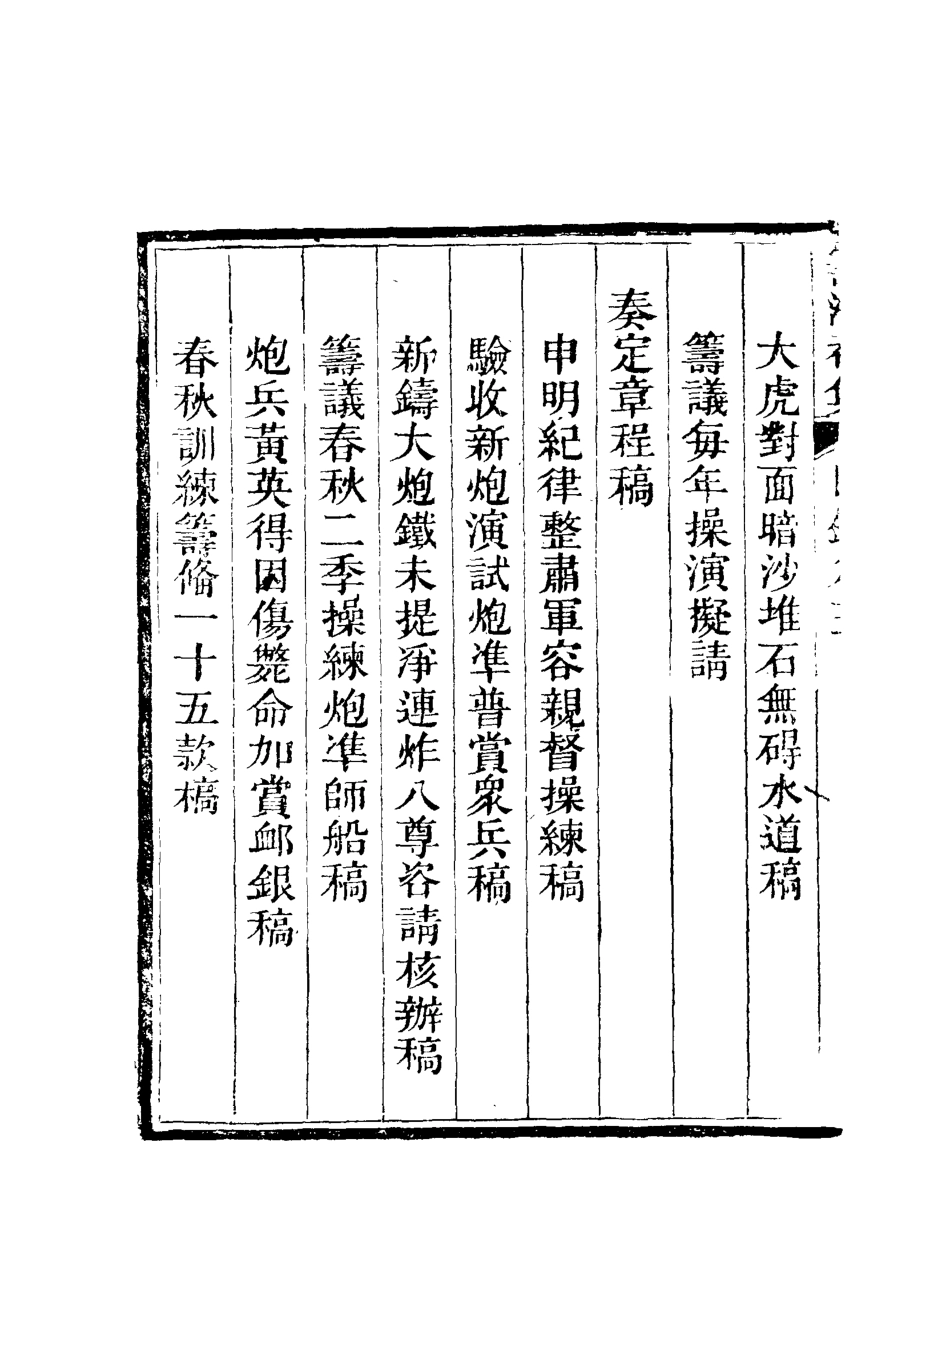 大虎對面暗沙堆石無碍水道稿
籌議每年操演擬請
奏定章程稿
申明紀律整肅軍容親督操練稿
驗收新炮演試炮準普賞衆兵稿
新鑄大炮鐵未提凈連炸八尊咨請核辦稿
籌議春秋二季操練炮準師船稿
炮兵黃英得因傷斃命加賞卹銀稿
春秋訓練籌備一十五款稿